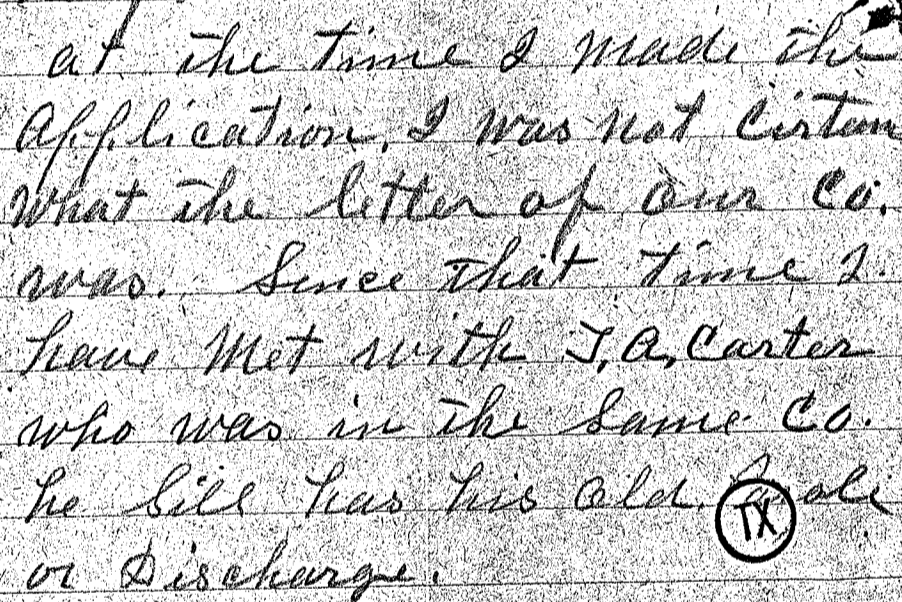 at the time I made the
Application, I was not Cirtan
what the letter of our Co.
was. Since that time I
have Met with T, A, Carter
who was in the Same Co.
he Sill has his old Paroli
or Discharge.
TX